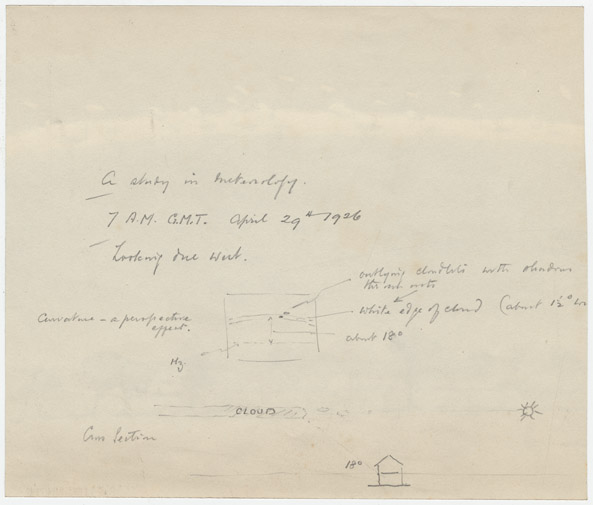 A study in meteorology.
7 A.M. G.M.T. April 29th 1926
Looking due west.
outlying cloudlets with shadows
thrown onto
white edge of cloud (about 1½°
Curvature - a perspective
effect.
about 18°
Hz.
CLOUD
Cross Section
18°